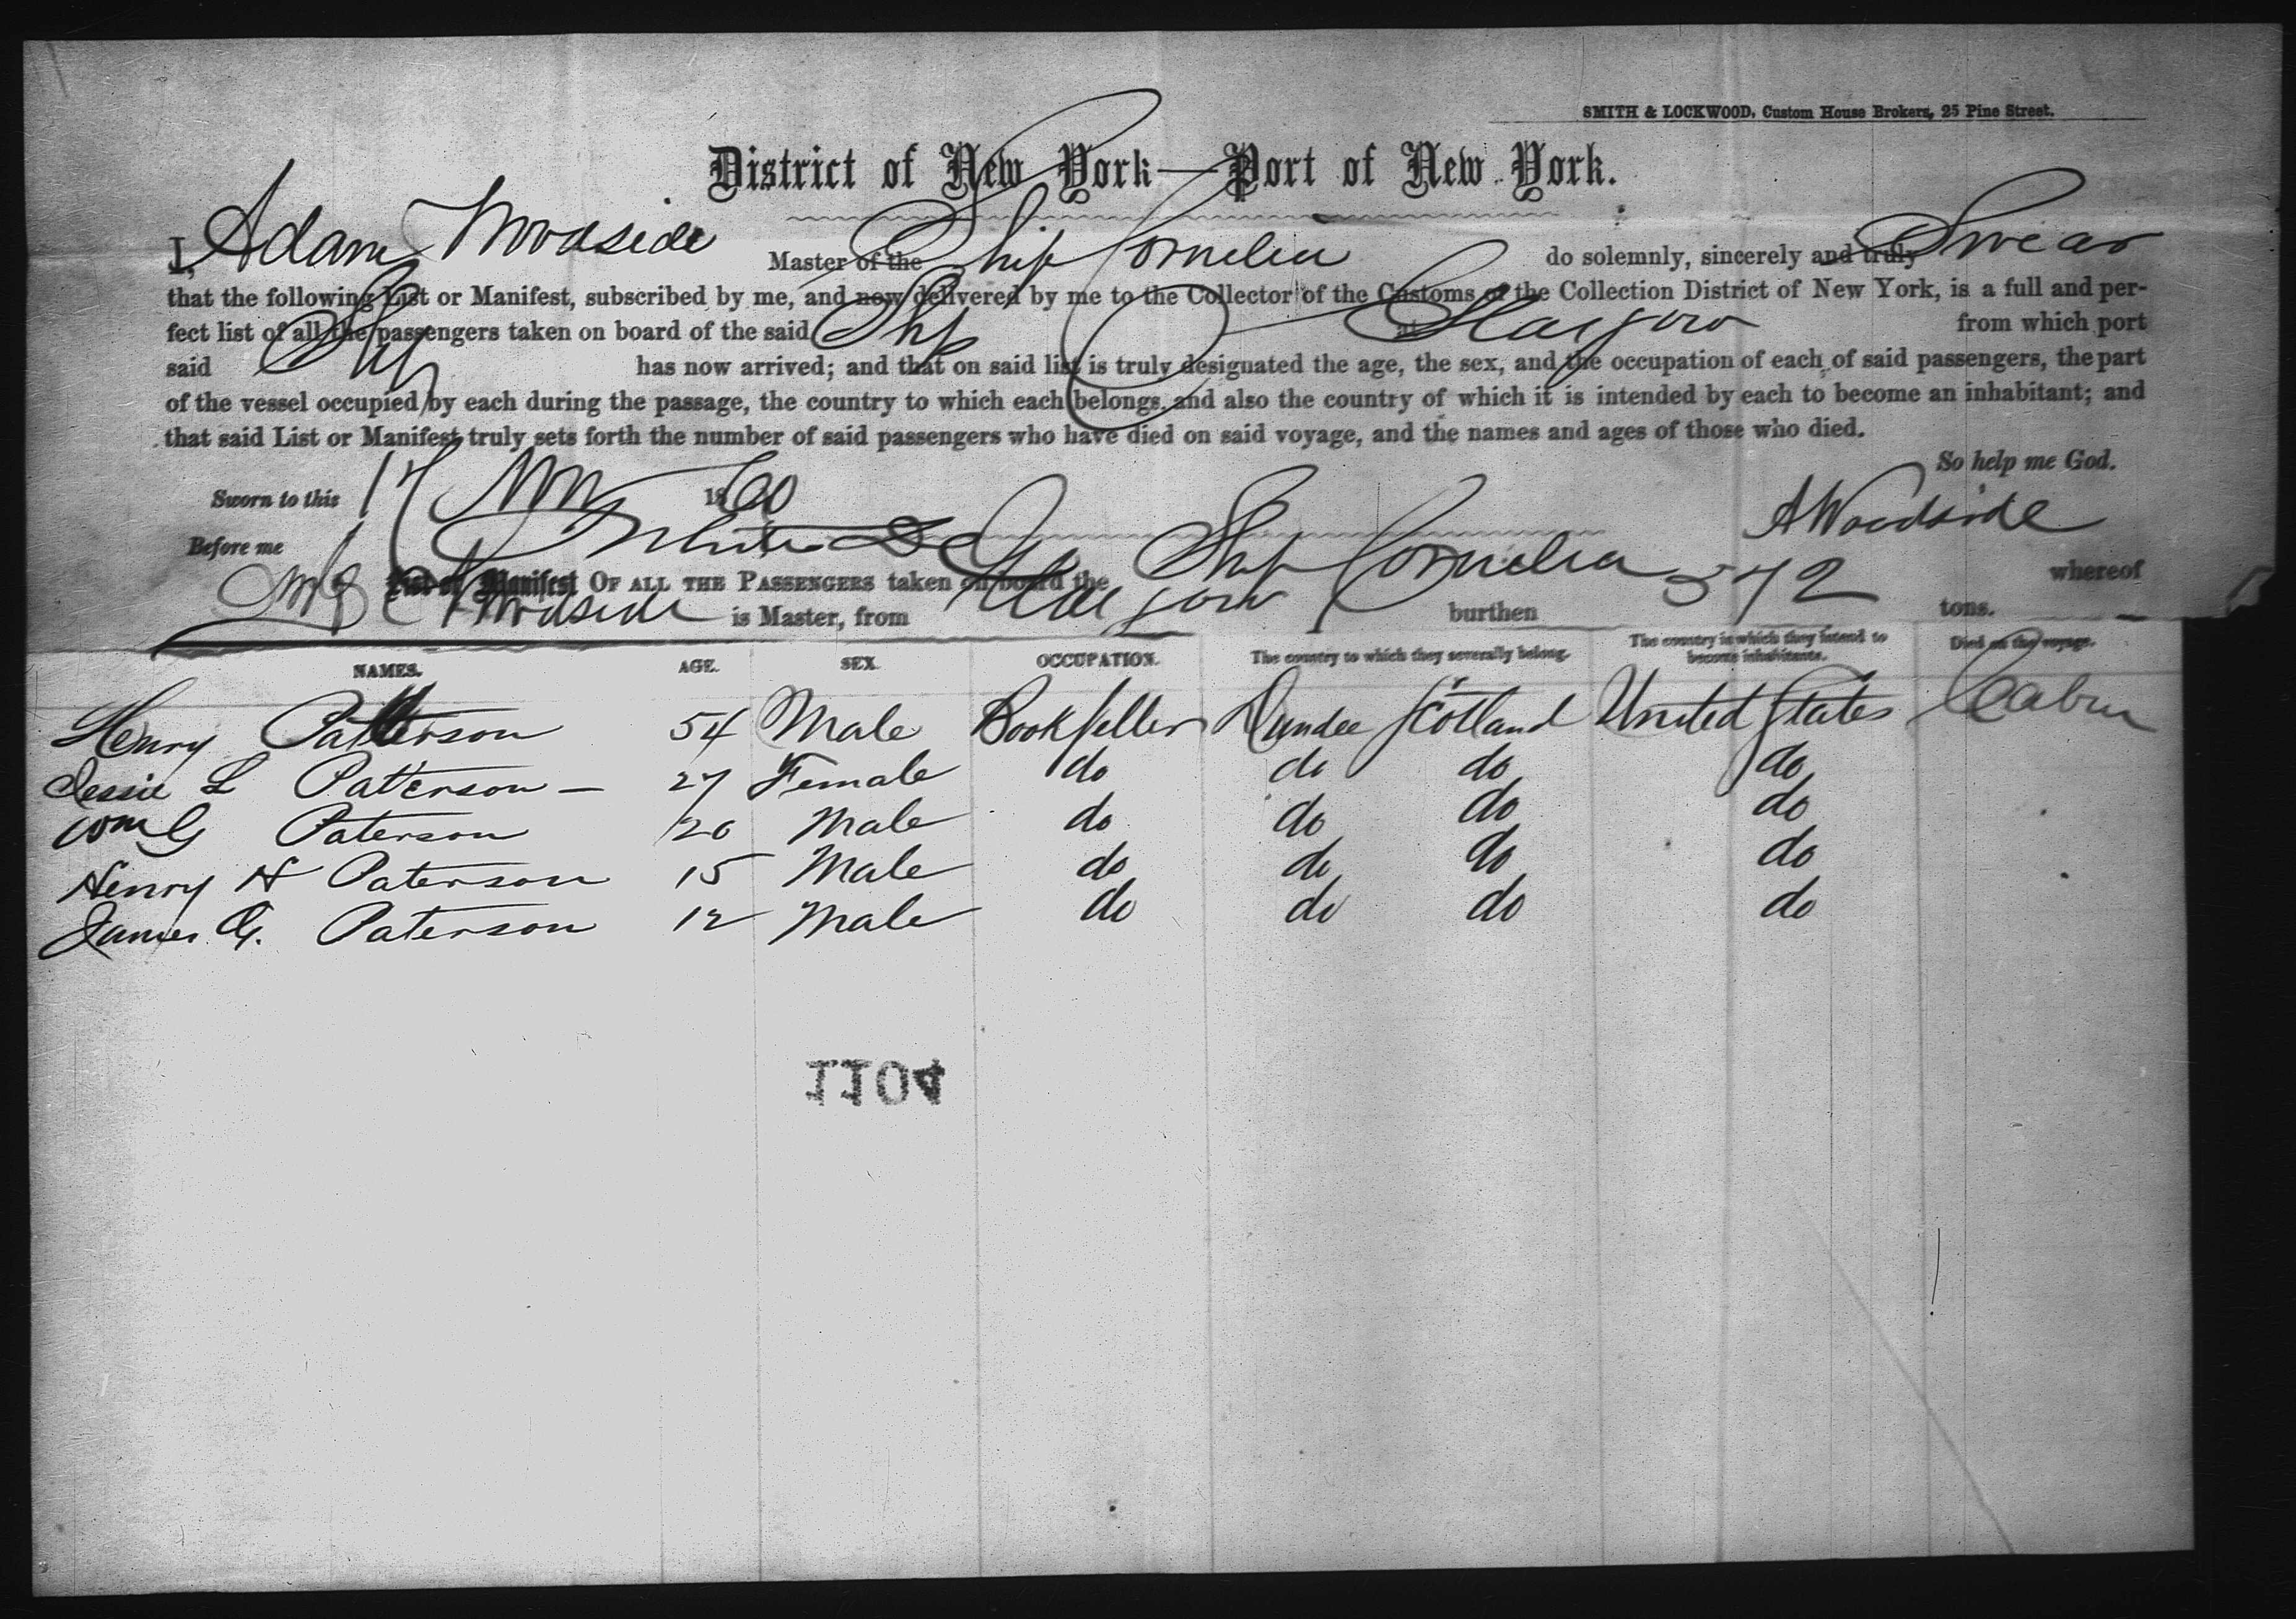 SMITH & LOCKWOOD, Custom House Brokers, 25 Pine Street.
District of New York—Port of New York.
I, Adam Woodside Master of the Ship Cornelia do solemnly, sincerely and truly Swear
that the following List or Manifest, subscribed by me, and now delivered by me to the Collector of the Customs of the Collection District of New York, is a full and per-
fect list of all the passengers taken on board of the said Ship at Glasgow from which port
said Ship has now arrived; and that on said list is truly designated the age, the sex, and the occupation of each of said passengers, the part
of the vessel occupied by each during the passage, the country to which each belongs, and also the country of which it is intended by each to become an inhabitant; and
that said List or Manifest truly sets forth the number of said passengers who have died on said voyage, and the names and ages of those who died.
So help me God.
Sworn to this 17 Nov 1860
A Woodside
Before me
List or Manifest OF ALL THE PASSENGERS taken on board the Ship Cornelia whereof
Woodside is Master, from Glasgow burthen 572 tons.
NAMES. AGE. SEX. OCCUPATION. The country to which they severally belong. The country in which they intend to become inhabitants. Died on the voyage.
Henry Patterson 54 Male Bookseller Dundee Scotland United States Cabin
Jessie L Patterson — 27 Female do do do do
Wm G Paterson 20 Male do do do do
Henry H Paterson 15 Male do do do do
James G. Paterson 12 Male do do do do
1104